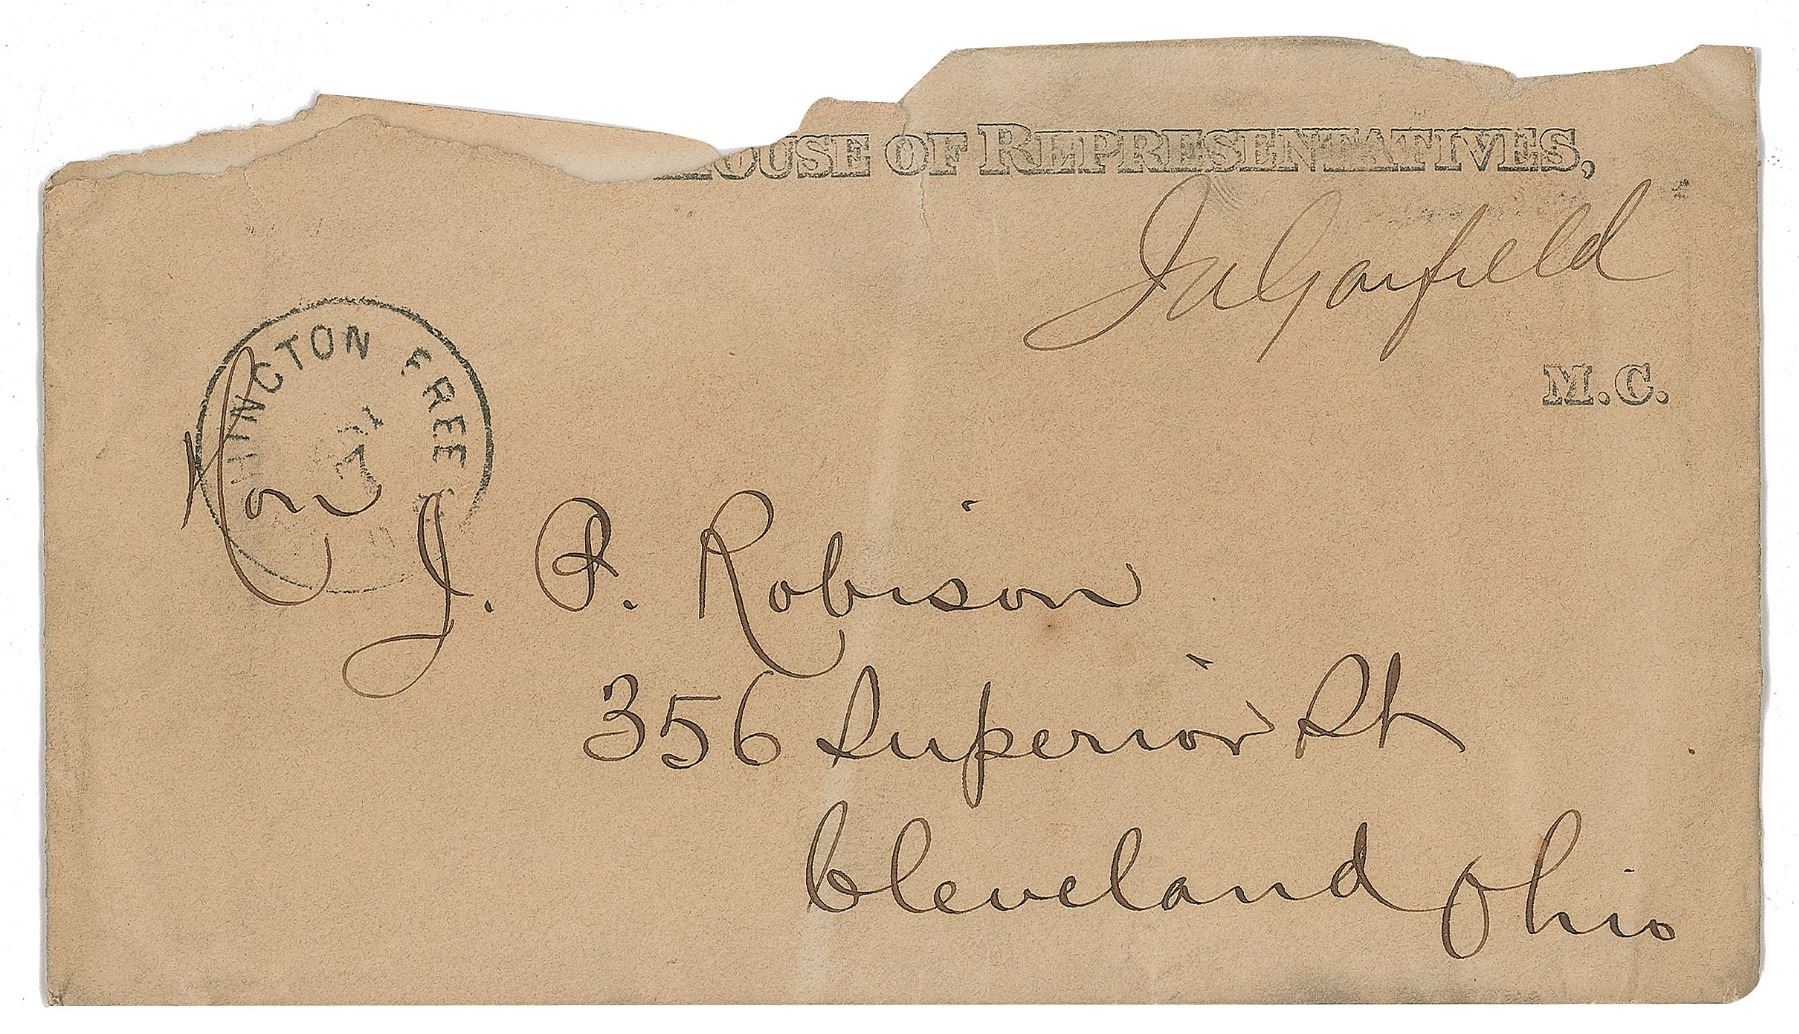 HOUSE OF REPRESENTATIVES,
JAGarfield
M.C.
HINGTON FREE
Hon
J. P. Robison
356 Superior St
Cleveland Ohio